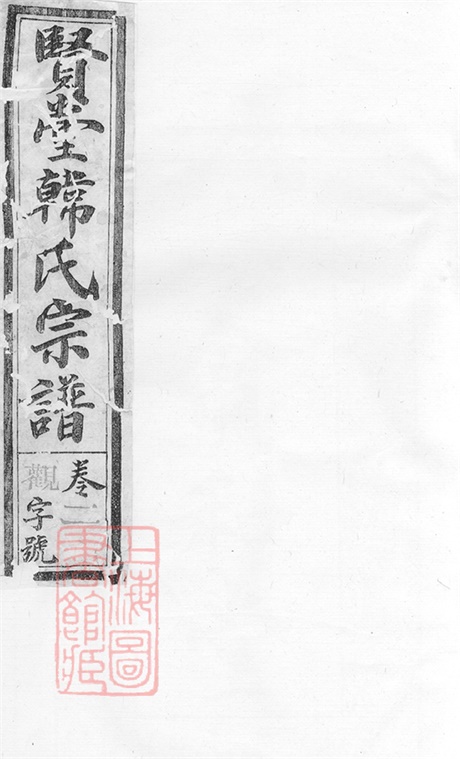 賢堂韓氏宗譜
卷二
觀字號
上海圖
書館藏